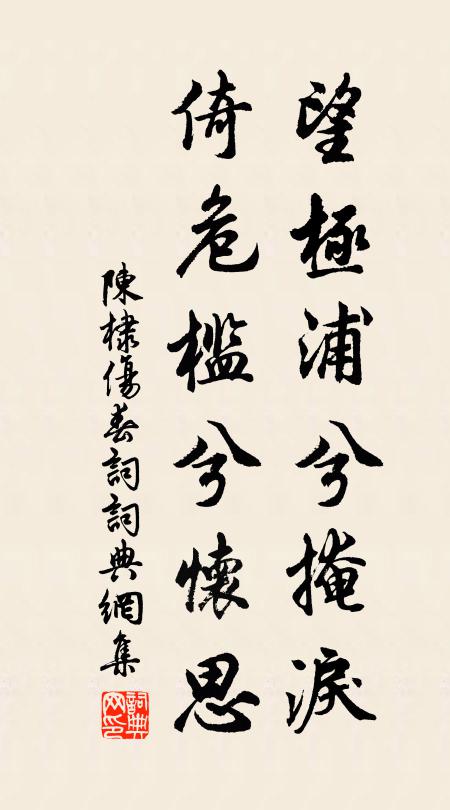 望極浦兮掩淚
倚危檻兮懷思
陳棣傷春詞詞典網集
詞典網印